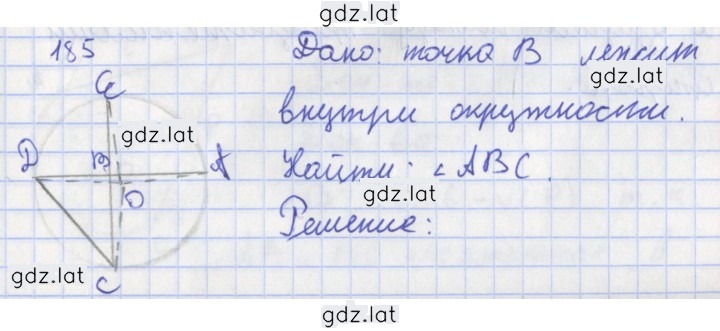 gdz.lat
185
Дано: точка В лежит
gdz.lat
G
внутри окружности.
gdz.lat
D B A
Найти: ∠ABC.
gdz.lat
O
Решение:
gdz.lat
C
gdz.lat